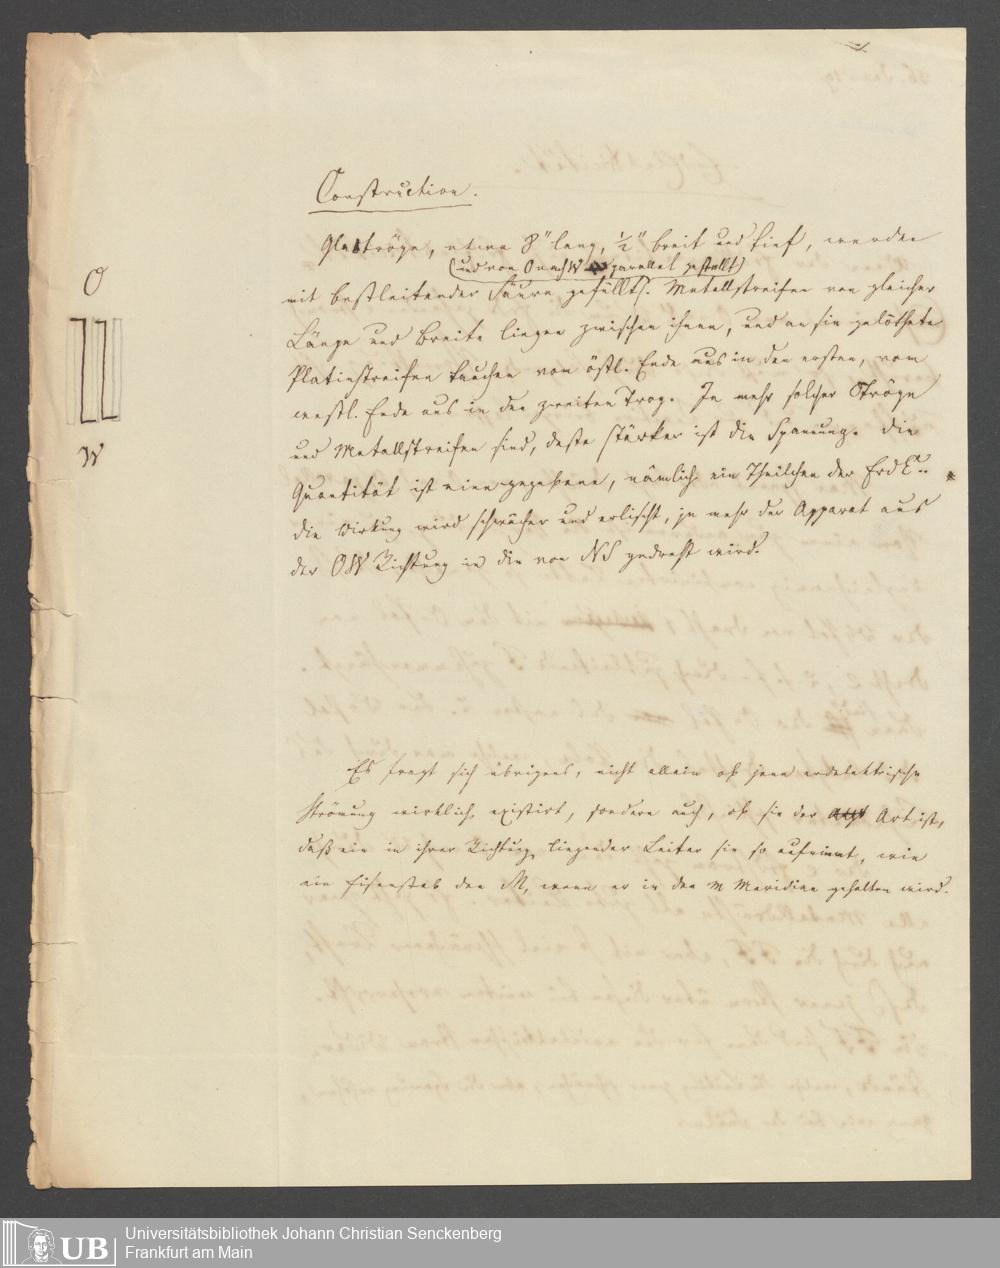 Construction.
Glaströge, etwa 8" lang, ½" breit und tief, werden
(und von O nach W parallel gestellt)
mit bestleitender Säure gefüllt. Metallstreifen von gleicher
Länge und Breite liegen zwischen ihnen, und an sie gelöthete
Platinstreifen tauchen vom östl. Ende aus in den ersten, vom
westl. Ende aus in den zweiten Trog. Je mehr solcher Tröge
und Metallstreifen sind, desto stärker ist die Spannung. Die
Quantität ist eine gegebene, nämlich ein Theilchen der Erd
die Wirkung wird schwächer und erlischt, je mehr der Apparat aus
der OW Richtung in die von NS gedreht wird.
O
W
Es fragt sich übrigens, nicht allein ob jene erdelektrische
Strömung wirklich existirt, sondern auch, ob sie der Art ist,
daß ein in ihrer Richtung liegender Leiter sie so aufnimmt, wie
ein Eisenstab den M, wenn er in den m Meridian gehalten wird.
UB
Universitätsbibliothek Johann Christian Senckenberg
Frankfurt am Main